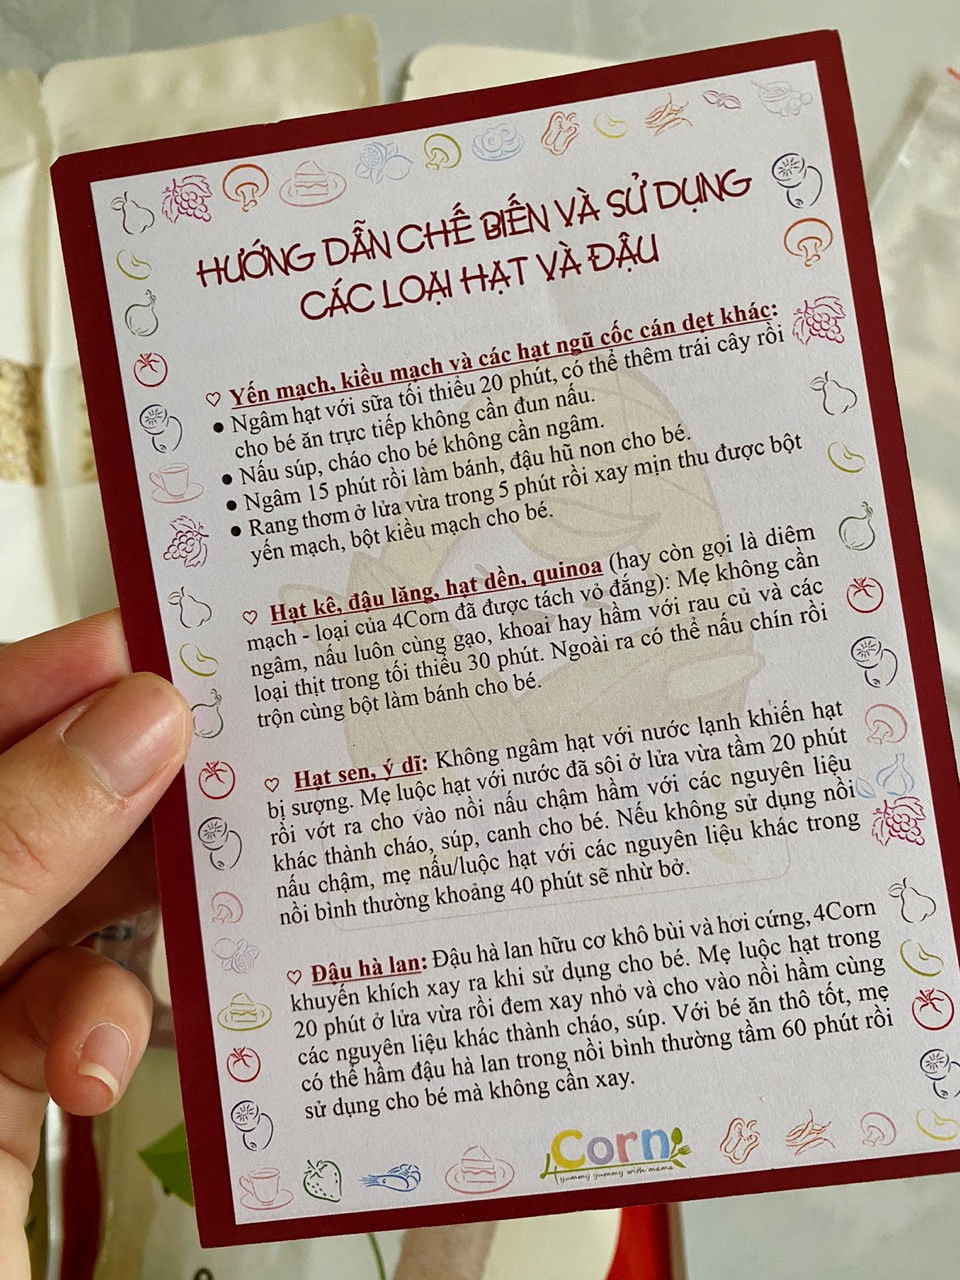 HƯỚNG DẪN CHẾ BIẾN VÀ SỬ DỤNG
CÁC LOẠI HẠT VÀ ĐẬU
♡ Yến mạch, kiều mạch và các hạt ngũ cốc cán dẹt khác:
● Ngâm hạt với sữa tối thiểu 20 phút, có thể thêm trái cây rồi
cho bé ăn trực tiếp không cần đun nấu.
● Nấu súp, cháo cho bé không cần ngâm.
● Ngâm 15 phút rồi làm bánh, đậu hũ non cho bé.
● Rang thơm ở lửa vừa trong 5 phút rồi xay mịn thu được bột
yến mạch, bột kiều mạch cho bé.
♡ Hạt kê, đậu lăng, hạt dền, quinoa (hay còn gọi là diêm
mạch - loại của 4Corn đã được tách vỏ đắng): Mẹ không cần
ngâm, nấu luôn cùng gạo, khoai hay hầm với rau củ và các
loại thịt trong tối thiểu 30 phút. Ngoài ra có thể nấu chín rồi
trộn cùng bột làm bánh cho bé.
♡ Hạt sen, ý dĩ: Không ngâm hạt với nước lạnh khiến hạt
bị sượng. Mẹ luộc hạt với nước đã sôi ở lửa vừa tầm 20 phút
rồi vớt ra cho vào nồi nấu chậm hầm với các nguyên liệu
khác thành cháo, súp, canh cho bé. Nếu không sử dụng nồi
nấu chậm, mẹ nấu/luộc hạt với các nguyên liệu khác trong
nồi bình thường khoảng 40 phút sẽ nhừ bở.
♡ Đậu hà lan: Đậu hà lan hữu cơ khô bùi và hơi cứng, 4Corn
khuyến khích xay ra khi sử dụng cho bé. Mẹ luộc hạt trong
20 phút ở lửa vừa rồi đem xay nhỏ và cho vào nồi hầm cùng
các nguyên liệu khác thành cháo, súp. Với bé ăn thô tốt, mẹ
có thể hầm đậu hà lan trong nồi bình thường tầm 60 phút rồi
sử dụng cho bé mà không cần xay.
4Corn
yummy yummy with mama